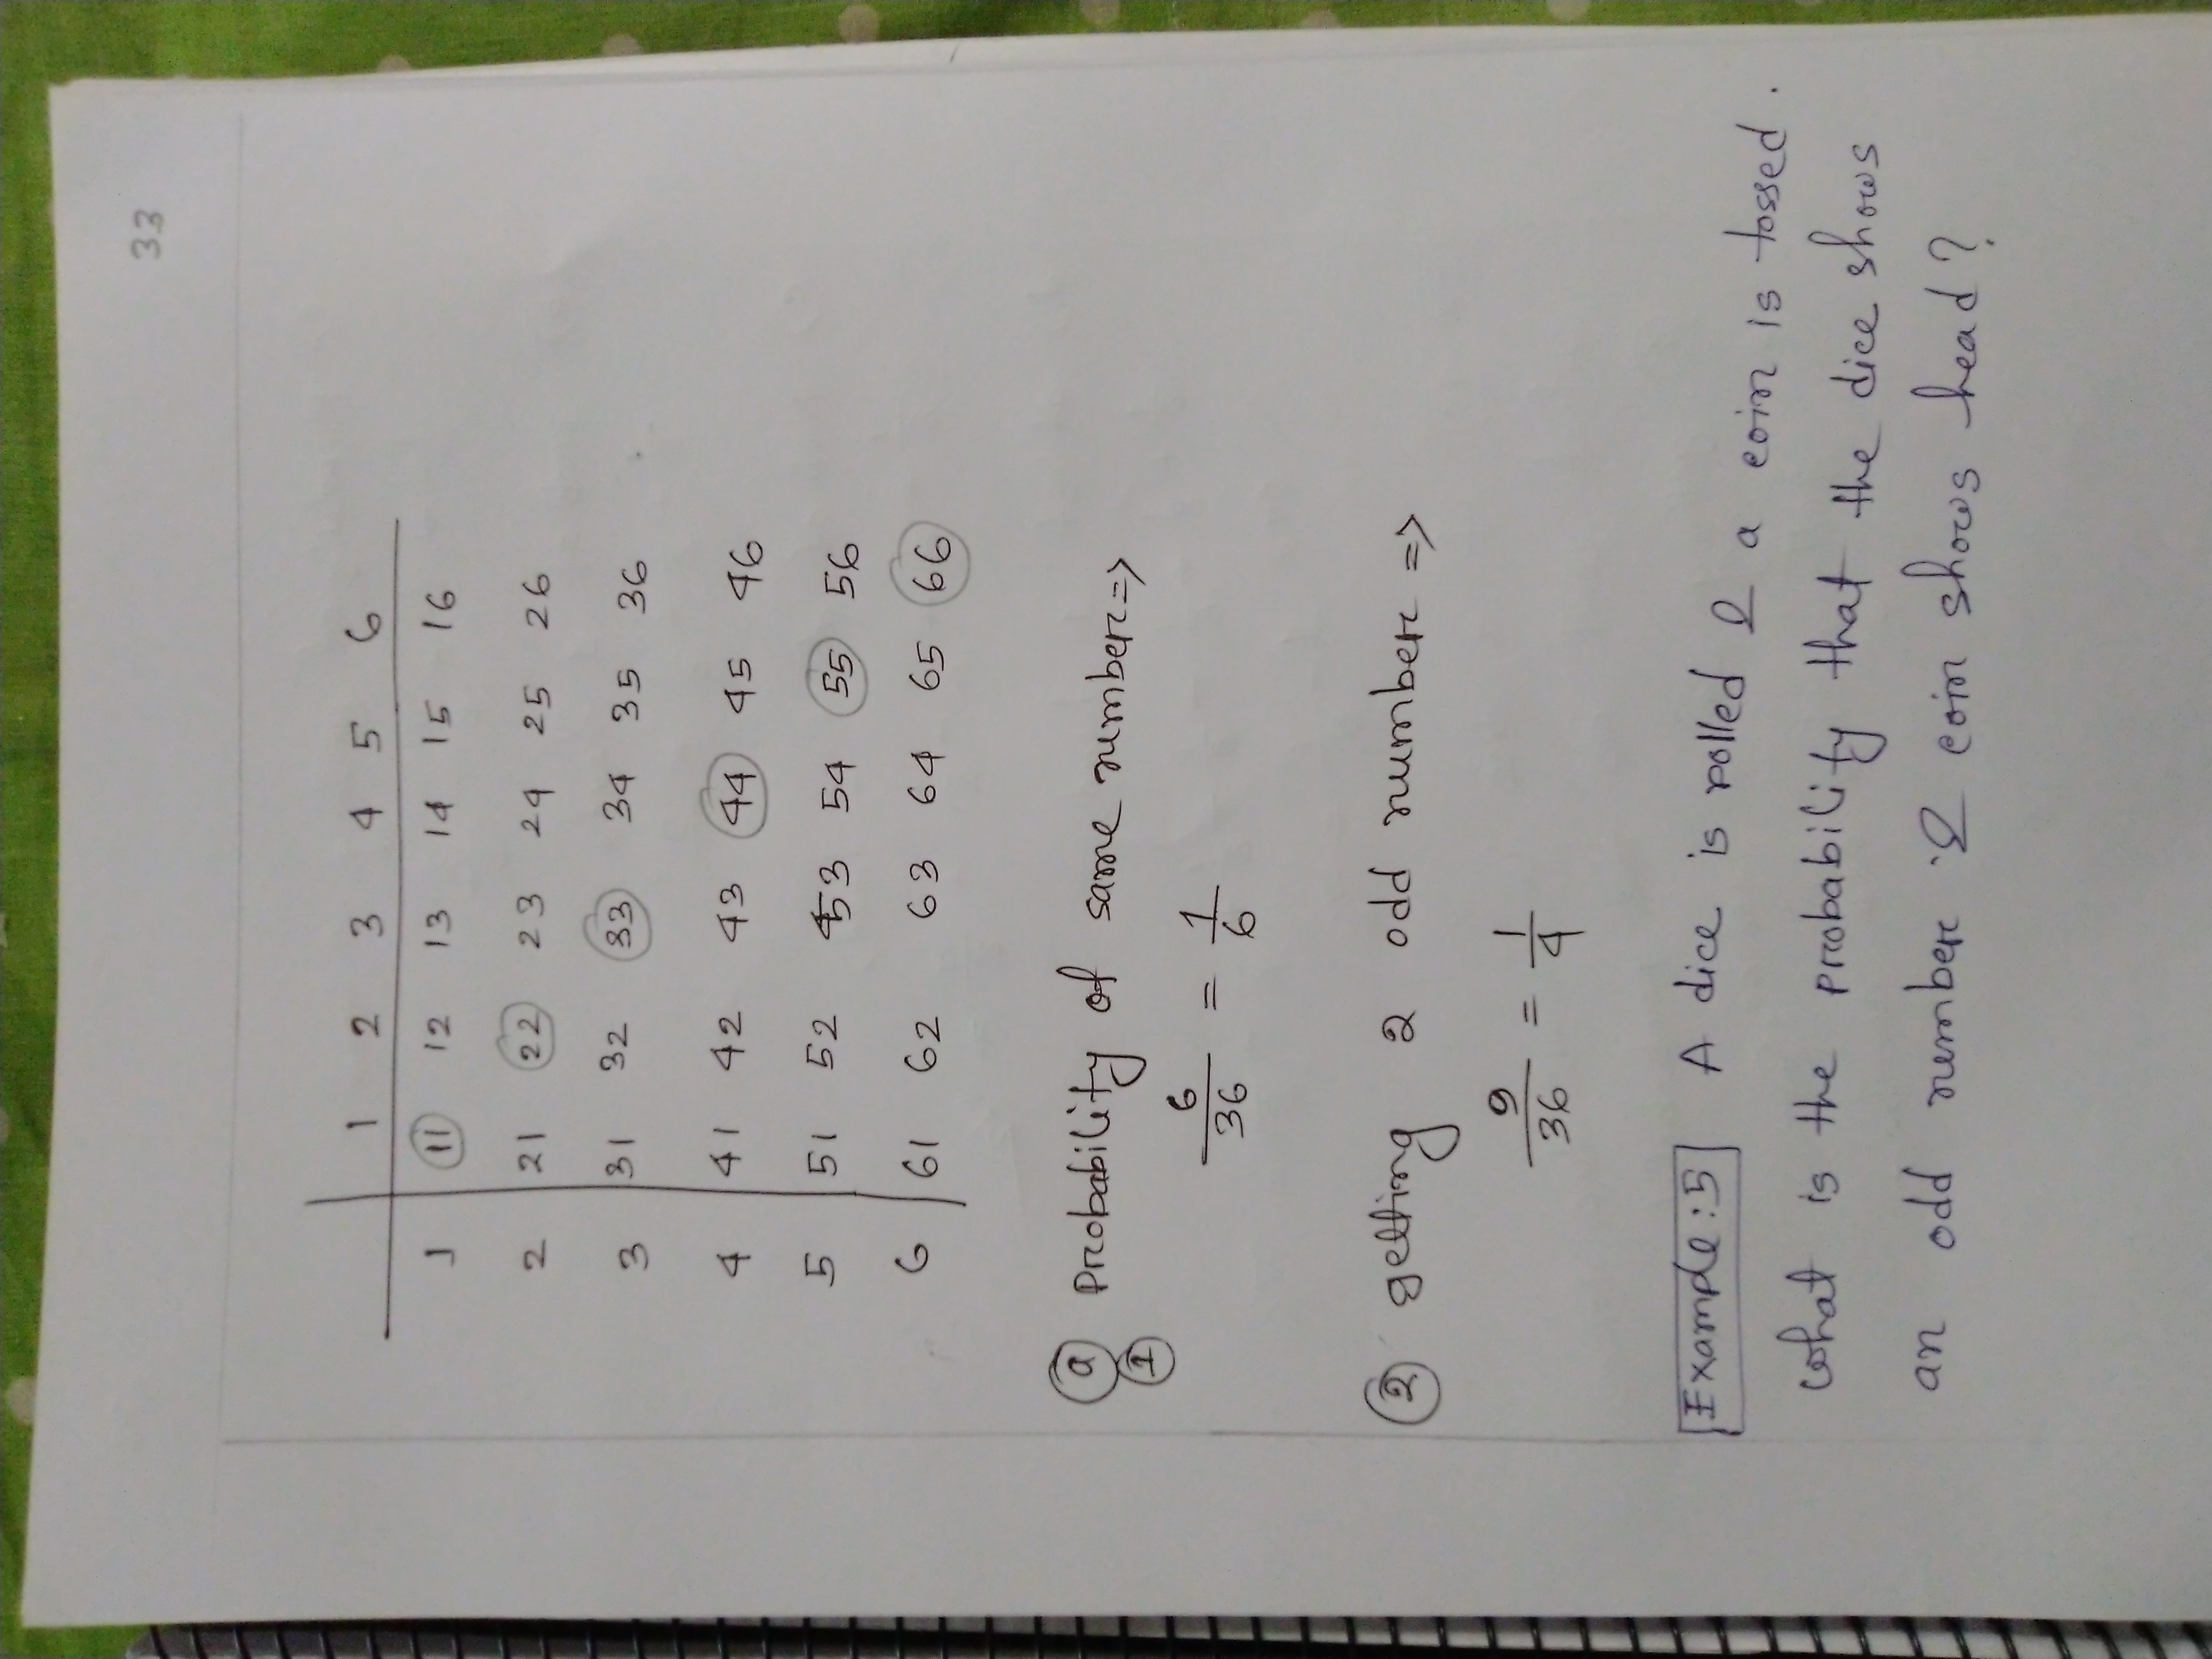 33
1 2 3 4 5 6
1 11 12 13 14 15 16
2 21 22 23 24 25 26
3 31 32 33 34 35 36
4 41 42 43 44 45 46
5 51 52 53 54 55 56
6 61 62 63 64 65 66
a Probability of same number =>
1
6/36 = 1/6
2 getting 2 odd number =>
9/36 = 1/4
Example:5 A dice is rolled & a coin is tossed.
What is the probability that the dice shows
an odd number & coin shows head?